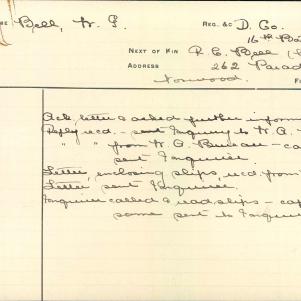 Bell, W. G. REG. &C D. Co.
16th Ba
NEXT OF KIN R. E. Bell (
ADDRESS 262 Parad
Norwood.
Ack. letter & asked further inform
Reply recd. - sent Inquiry to W. A.
" " from W. A. Bureau - ca
sent Inquirer.
Letter, enclosing slips, recd. from
Letter sent Inquirer.
Inquirer called & read slips - cop
same sent to Inquire